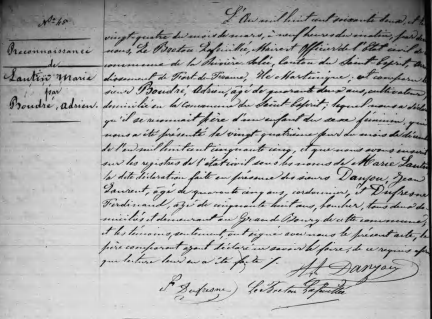 N° 45
Reconnaissance
de
Lautin, Marie
par
Boudré, Adrien.
L'An mil huit cent soixante deux, et le
vingt quatre du mois de mars, à neuf heures du matin, par devant
nous, Le Breton Lafeuillée, Maire et Officier de l'Etat civil de la
commune de la Rivière Salée, canton du Saint Esprit, arron-
dissement de Fort de France, île Martinique, est comparu le
sieur Boudré, Adrien, âgé de quarante deux ans, cultivateur
domicilié en la commune du Saint Esprit, lequel nous a déclaré
qu'il se reconnait père d'un enfant du sexe féminin, qui
nous a été présenté le vingt quatrième jour du mois de
de l'an mil huit cent cinquante cinq, et que nous avons inscrit
sur les registres de l'état civil sous les noms de Marie Lautin
la dite déclaration faite en présence des sieurs Danjou, Jean
Laurent, âgé de quarante cinq ans, cordonnier, et Dufresne
Ferdinand, âgé de cinquante huit ans, tous deux do-
miciliés et demeurant au Grand Bourg de cette commune,
et les témoins, seulement, ont signé avec nous le présent acte, le
père comparant ayant déclaré ne savoir le faire, de ce requis après
que lecture leur en a été faite /.
Danjou
F. Dufresne Le Breton Lafeuillée